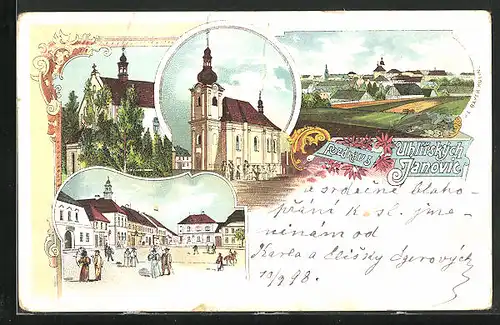 Pozdrav z
Uhlířských
Janovic
a srdečné blaho-
přání k sl. jme-
ninam od
Karla a Elišky Egerových
10/9 98.